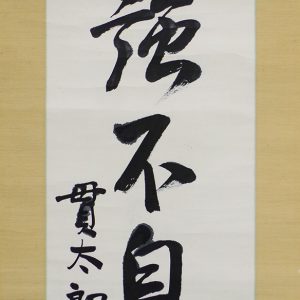 強不自
貫太郎